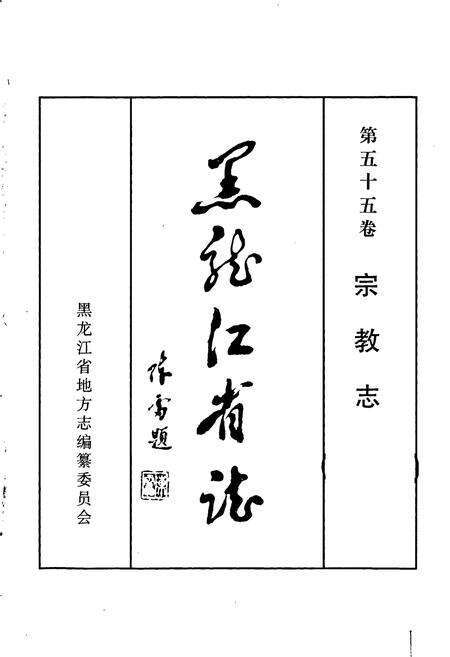 第五十五卷 宗教志
黑龙江省志
陈雷题
黑龙江省地方志编纂委员会